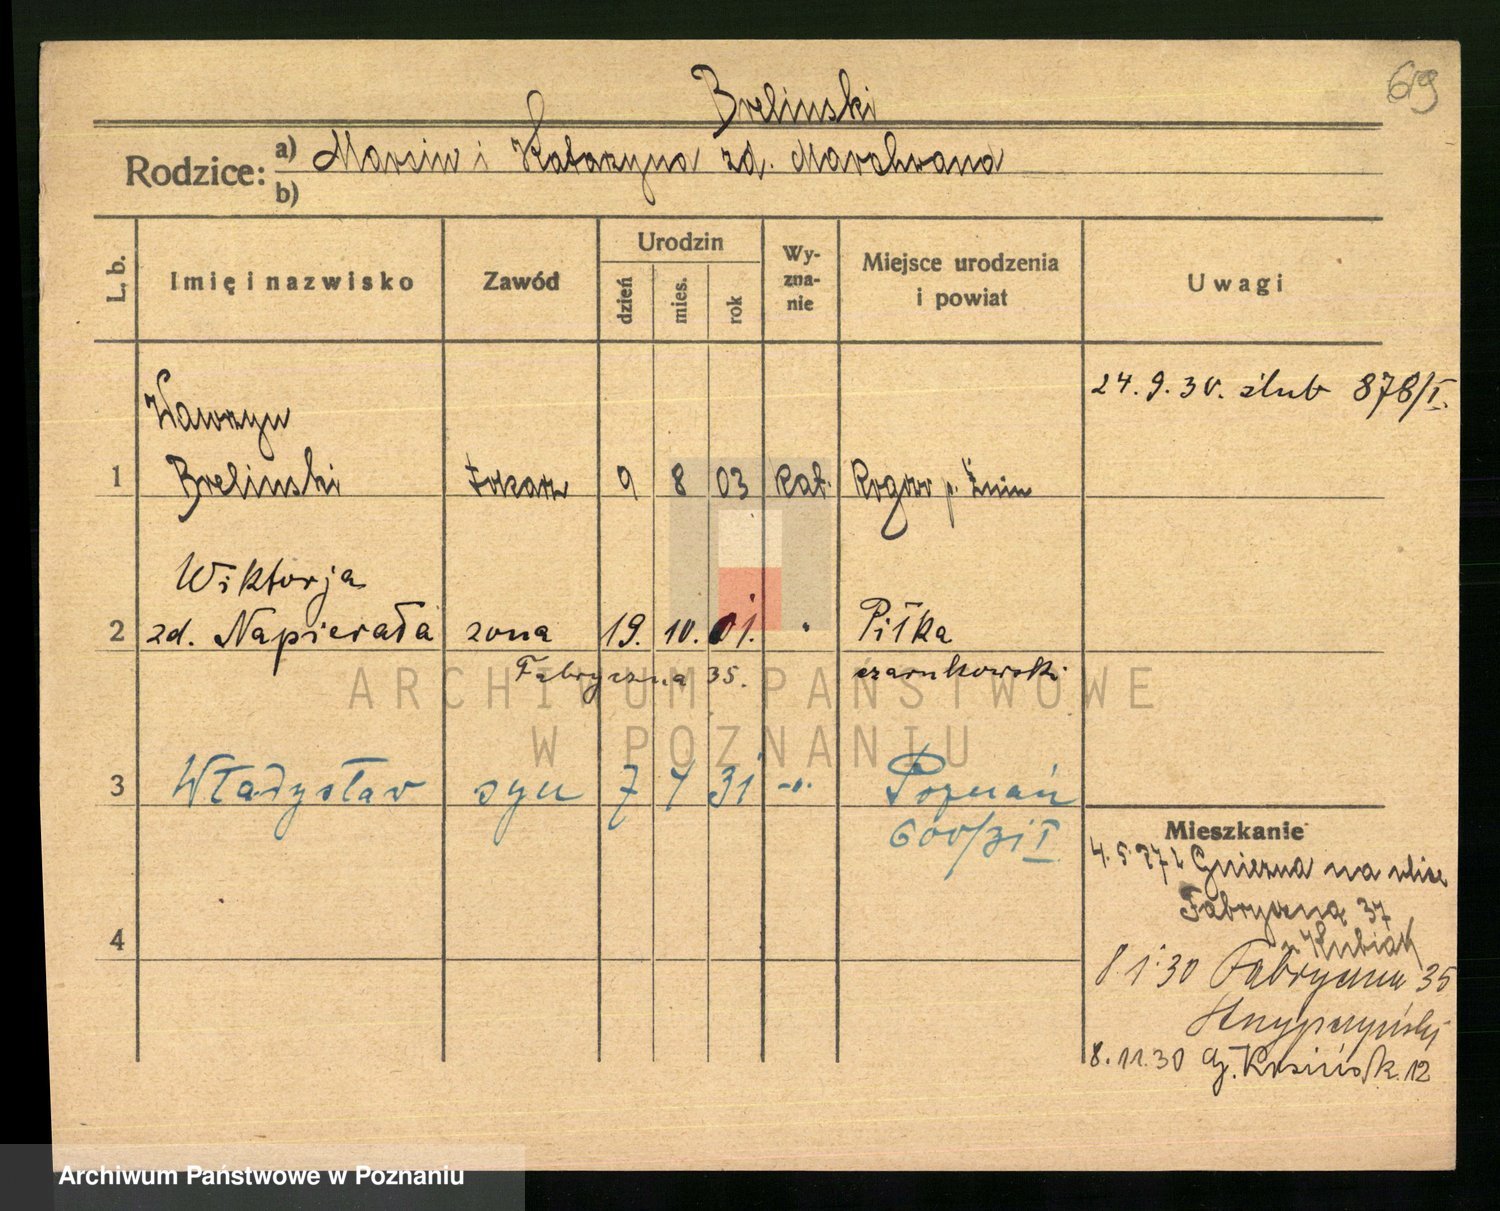 619
Brelinski
Rodzice: a) Marcin i Katarzyna zd. Marchwana
b)
L. b. Imię i nazwisko Zawód Urodzin dzień mies. rok Wy-zna-nie Miejsce urodzenia i powiat Uwagi
24. 9. 30. ślub 878/I.
Wawrzyn
1 Brelinski tokarz 9 8 03 kat. Rogowo p. Żnin
Wiktorja
2 zd. Napierała żona 19. 10. 01. " Piłka
Fabryczna 35. czarnkowski
3 Władysław syn 7 4 31 -"- Poznań
600/31 I
Mieszkanie
Gniezna na ulice
Fabryczną 37
z Kubiak
4
8.1.30 Fabryczna 35
8.11.30 12
ARCHIWUM PAŃSTWOWE
W POZNANIU
Archiwum Państwowe w Poznaniu